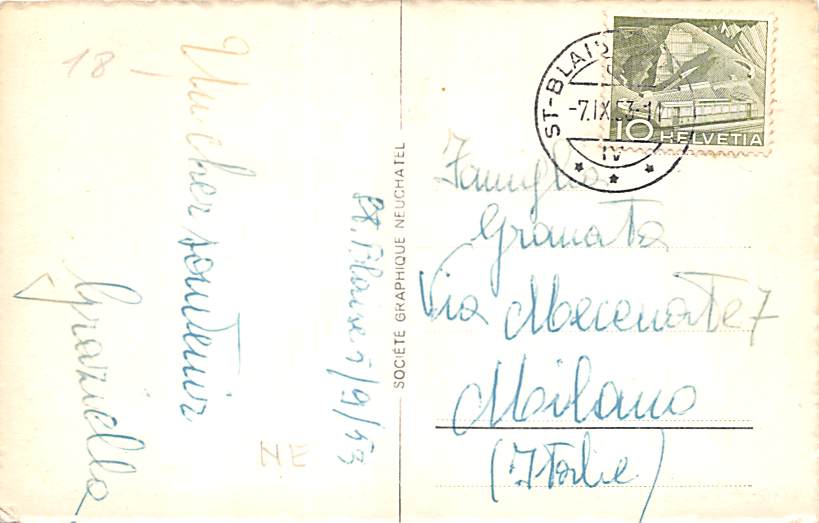 18
Un cher souvenir
Graziella
St. Blaise 7/9/53
NE
SOCIÉTÉ GRAPHIQUE NEUCHATEL
ST-BLAIS
-7.IX.53-1
IV
10 HELVETIA
Famiglia
Granata
Via Mecenate 7
Milano
(Italie)